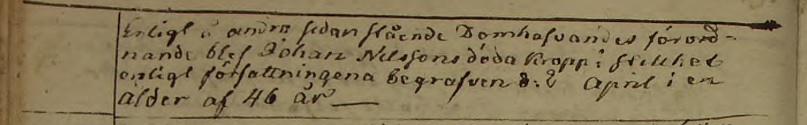 Enligt å andra sidan stående Domhafvandes förord-
nande blef Johan Nilssons döda kropp i stillhet
enligt författningena begrafven d: 2 April i en
ålder af 46 år